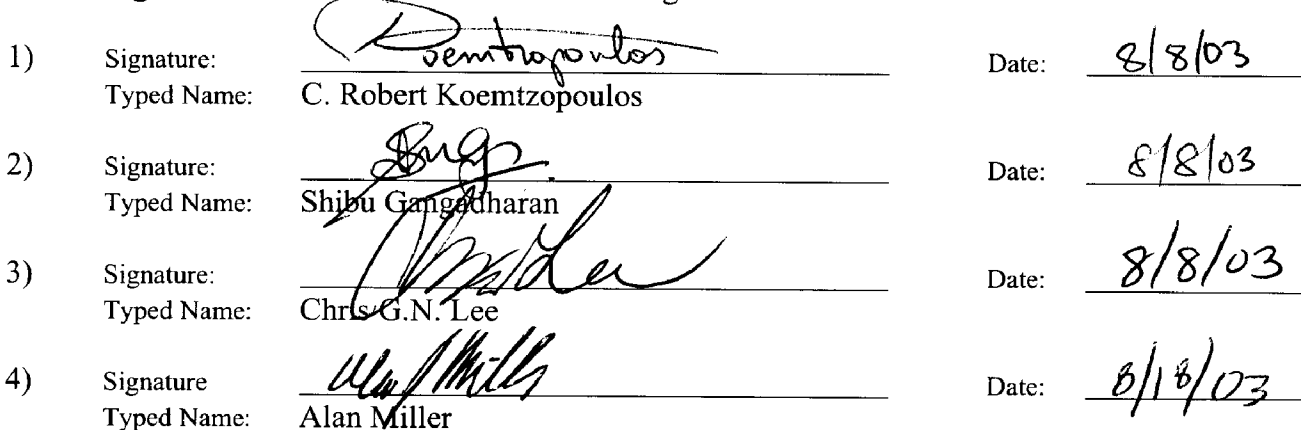 1) Signature: Koemtzopoulos Date: 8/8/03
Typed Name: C. Robert Koemtzopoulos
2) Signature: Date: 8/8/03
Typed Name: Shibu Gangadharan
3) Signature: Chris Lee Date: 8/8/03
Typed Name: Chris G.N. Lee
4) Signature Alan J Miller Date: 8/18/03
Typed Name: Alan Miller